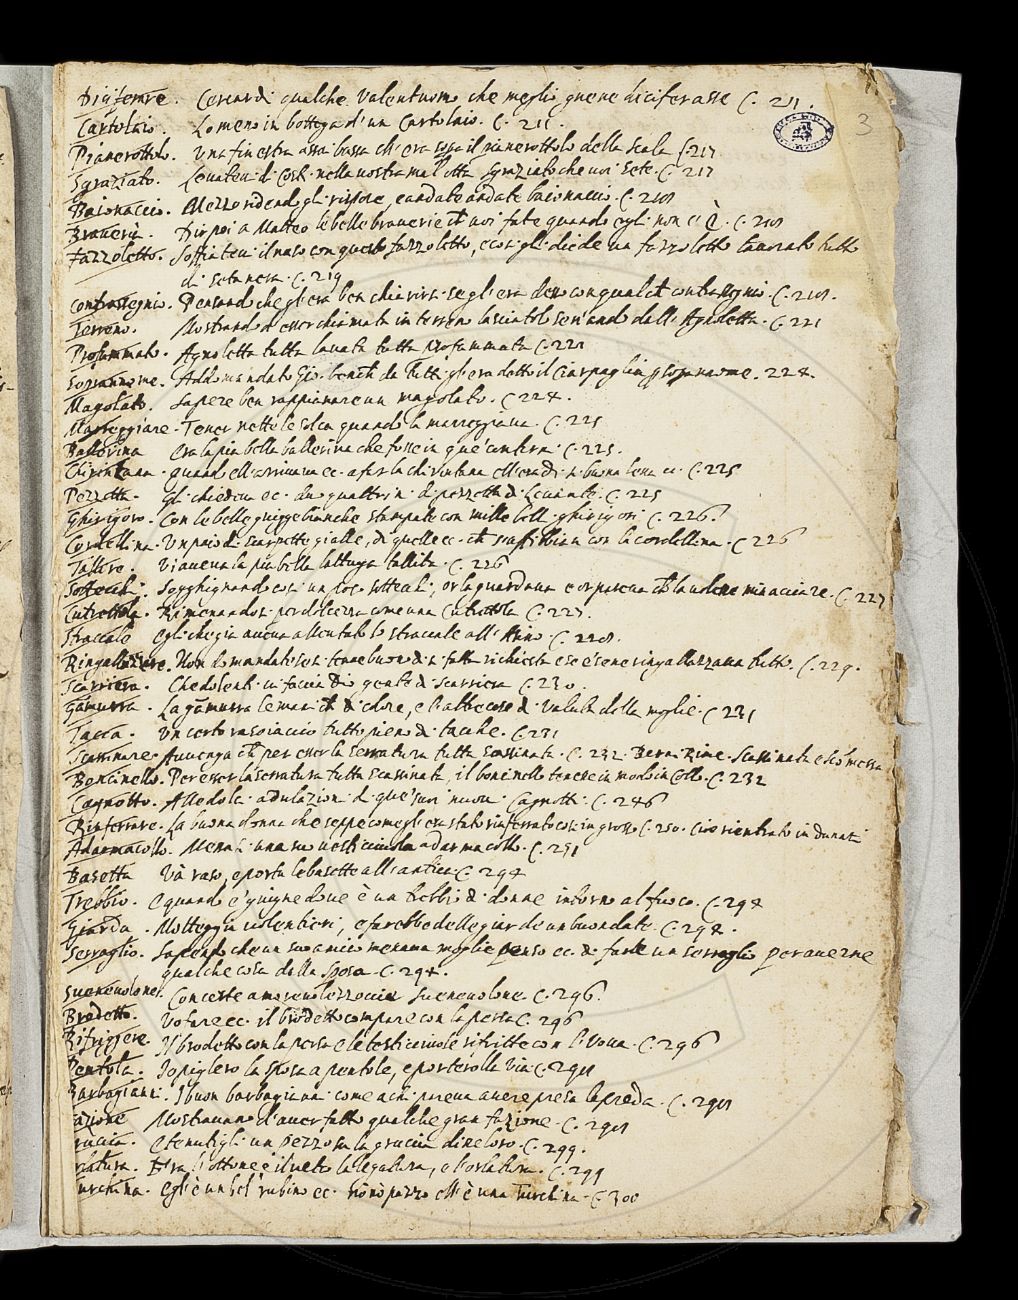 Diciferare. Cercar di qualche valentuomo che meglio gnene diciferasse C. 211.
Cartolaio. Lo meno in bottega d'un Cartolaio. C. 211.
Pianerottolo. Una finestra assai bassa ch'era sopra il pianerottolo della scala C. 217
Sgraziato. nella vostra mal'otta Sgraziato che voi sete. C. 217
Baionaccio. Mezzo ridendo gli rispose, e andate andate baionaccio. C. 218
Braverie. Dipoi a Matteo le belle braverie che voi fate quando egli non c'è. C. 218
Fazzoletto. Soffiatevi il naso con questo fazzoletto, e così gli diede un fazzoletto lavorato tutto
di seta nera. C. 219
Contrassegnio. Pensando che gl'era ben chiarirsi se gl'era desso con qualche contrassegnio. C. 218.
Terreno. Mostrando d'esser chiamata in terreno lasciatolo serrando dall'Agnoletta. C. 221
Profummato. Agnoletta tutta lavata tutta profummata C. 221
Soprannome. Addomandato Gio. benchè da tutti gl'era detto il Ciarpaglia per soprannome. 224.
Magolato. Sapere ben rappianare un magolato. C. 224.
Marreggiare. Tener nette le solca quando la marreggiava. C. 225
Ballerina era la più bella ballerina che fosse in que' contorni. C. 225.
Chirintana. quando ell'arrivava ec. a far la chirintana ell'era di sì buona lena ec. C. 225
Pezzetta. Gli chiedeva ec. duo quattrin di pezzetta di Levante. C. 225
Ghirigoro. Con le belle guigge bianche stampate con mille belli ghirigori C. 226.
Cordellina. Un paio di scarpette gialle, di quelle ec. che s'affibbian con la cordellina. C. 226
Tallire. Vi aveva la più bella lattuga tallita. C. 226
Sottecchi. Sogghignando così un poco sottecchi, or la guardava e or pareva che la volesse minacciare. C. 227
Cutrettola. Rimenandosi per dolcezza come una Cutrettola C. 227.
Straccale Egli che già aveva allentato lo straccale all'Asino C. 228.
Ringalluzzare. Non domandate se si tenne buono di sì fatta richiesta e se e' se ne ringalluzzava tutto. C. 229.
Scarriera. Che dolenti vi faccia Dio gente di scarriera C. 230.
Gamurra. La gamurra le maniche di colore, e l'altre cose di valuta della moglie. C. 231
Tacca. Un certo rasoiaccio tutto pieno di tacche. C. 231
Scassinare. Avvenga che per esser la serratura tutta scassinata. C. 232. Bern. Rime. Scassinata
Boncinello. Per esser la serratura tutta scassinata, il boncinello tenesse in modo in collo. C. 232
Cagnotto. Alle dolci adulazioni di que' suoi nuovi Cagnotti. C. 246
Rinferrare. La buona donna che seppe come gl'era stato rinferrato così in grosso C. 250. Cioè rientrato in danari
Adarmacollo. Messasi una sua vesticciuola ad armacollo. C. 251
Basetta Và raso, e porta le basette all'antica. C. 294
Trebbio. E quando e' giugne dove è un trebbio di donne intorno al fuoco. C. 294
Giarda. Motteggia volentieri, e farebbe delle giarde un buondate. C. 294.
Serraglio. Sapendo che un suo amico menava moglie penso ec. di farle un serraglio per averne
qualche cosa dalla sposa. C. 294.
Suenevolone. Con ceste amorevolezzoccie suenevolone. C. 296.
Brodetto. Vo fare ec. il brodetto compare con la persa C. 296
Rifriggere. Il brodetto con la persa e le testicciuole rifritte con l'Uova. C. 296
Pentola. Io piglero la sposa a pentole, e porterolla via C. 298
Barbagianni. I buon barbagianni come a chi pareva avere presa la preda. C. 298
Fazione Mostravano d'aver fatto qualche gran fazione. C. 298
Gruccia. E tenutigli un pezzo su la gruccia dineloro. C. 299.
Orlatura. Era l'ottone e il vetro la legatura, e l'orlatura. C. 299
Turchina. Egli è un bel rubino ec. nonò pazzo ell'è una Turchina. C. 300
3